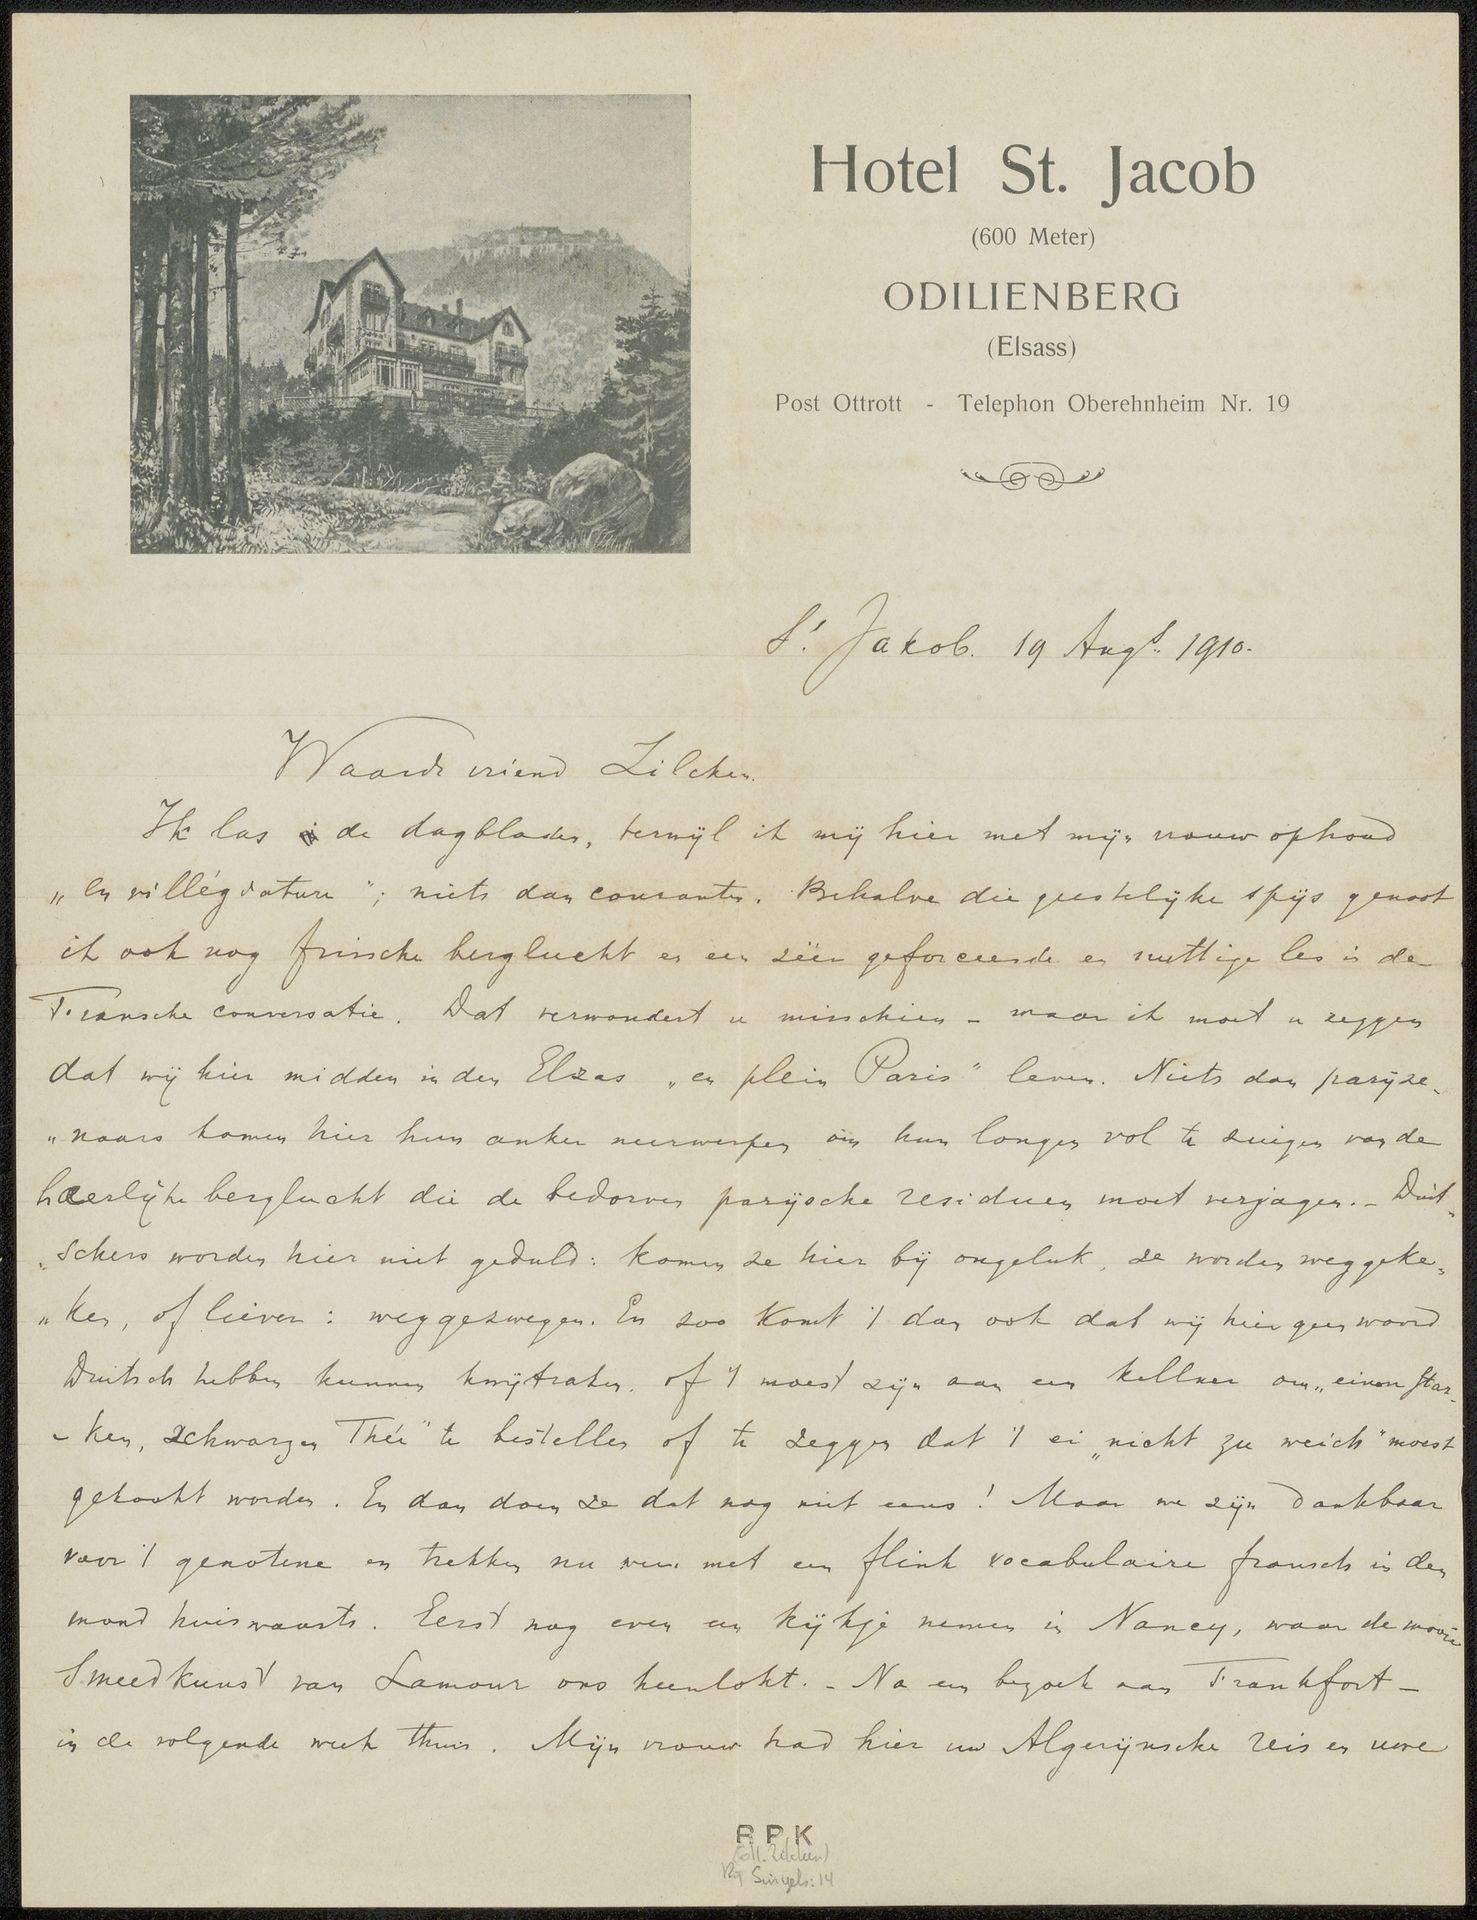 Hotel St. Jacob
(600 Meter)
ODILIENBERG
(Elsass)
Post Ottrott - Telephon Oberehnheim Nr. 19
St. Jakob. 19 Augt. 1910.
Waarde vriend Zilcken.
Ik las de dagbladen, terwijl ik mij hier met mijn vrouw ophoud
„en villégiature"; niets dan couranten. Behalve die geestelijke spijs genoot
ik ook nog frissche berglucht en een zéér geforceerde en nuttige les in de
Fransche conversatie. Dat verwondert u misschien - maar ik moet u zeggen
dat wij hier midden in den Elzas „en plein Paris" leven. Niets dan parijze-
„naars komen hier hun anker neerwerpen om hun longen vol te zuigen van de
heerlijke berglucht die de bedorven parijsche residuen moet verjagen. - Duit-
„schers worden hier niet geduld: komen ze hier bij ongeluk, ze worden weggeke-
„ken, of liever: weggezwegen. En zoo komt 't dan ook dat wij hier geen woord
Duitsch hebben kunnen kwijtraken. of 't moest zijn aan een kellner om „einen star-
- ken, schwarzen Thée" te bestellen of te zeggen dat 't ei „nicht zu weich" moest
gekookt worden. En dan doen ze dat nog niet eens! Maar we zijn dankbaar
voor 't genotene en trekken nu weer met een flink vocabulaire fransch in den
mond huiswaarts. Eerst nog even een kijkje nemen in Nancy, waar de mooie
Smeedkunst van Lamour ons heenlokt. - Na een bezoek aan Frankfort -
in de volgende week thuis. Mijn vrouw had hier uw Algerijnsche reis en uwe
RPK
(Coll. Zilcken)
Singels: 14